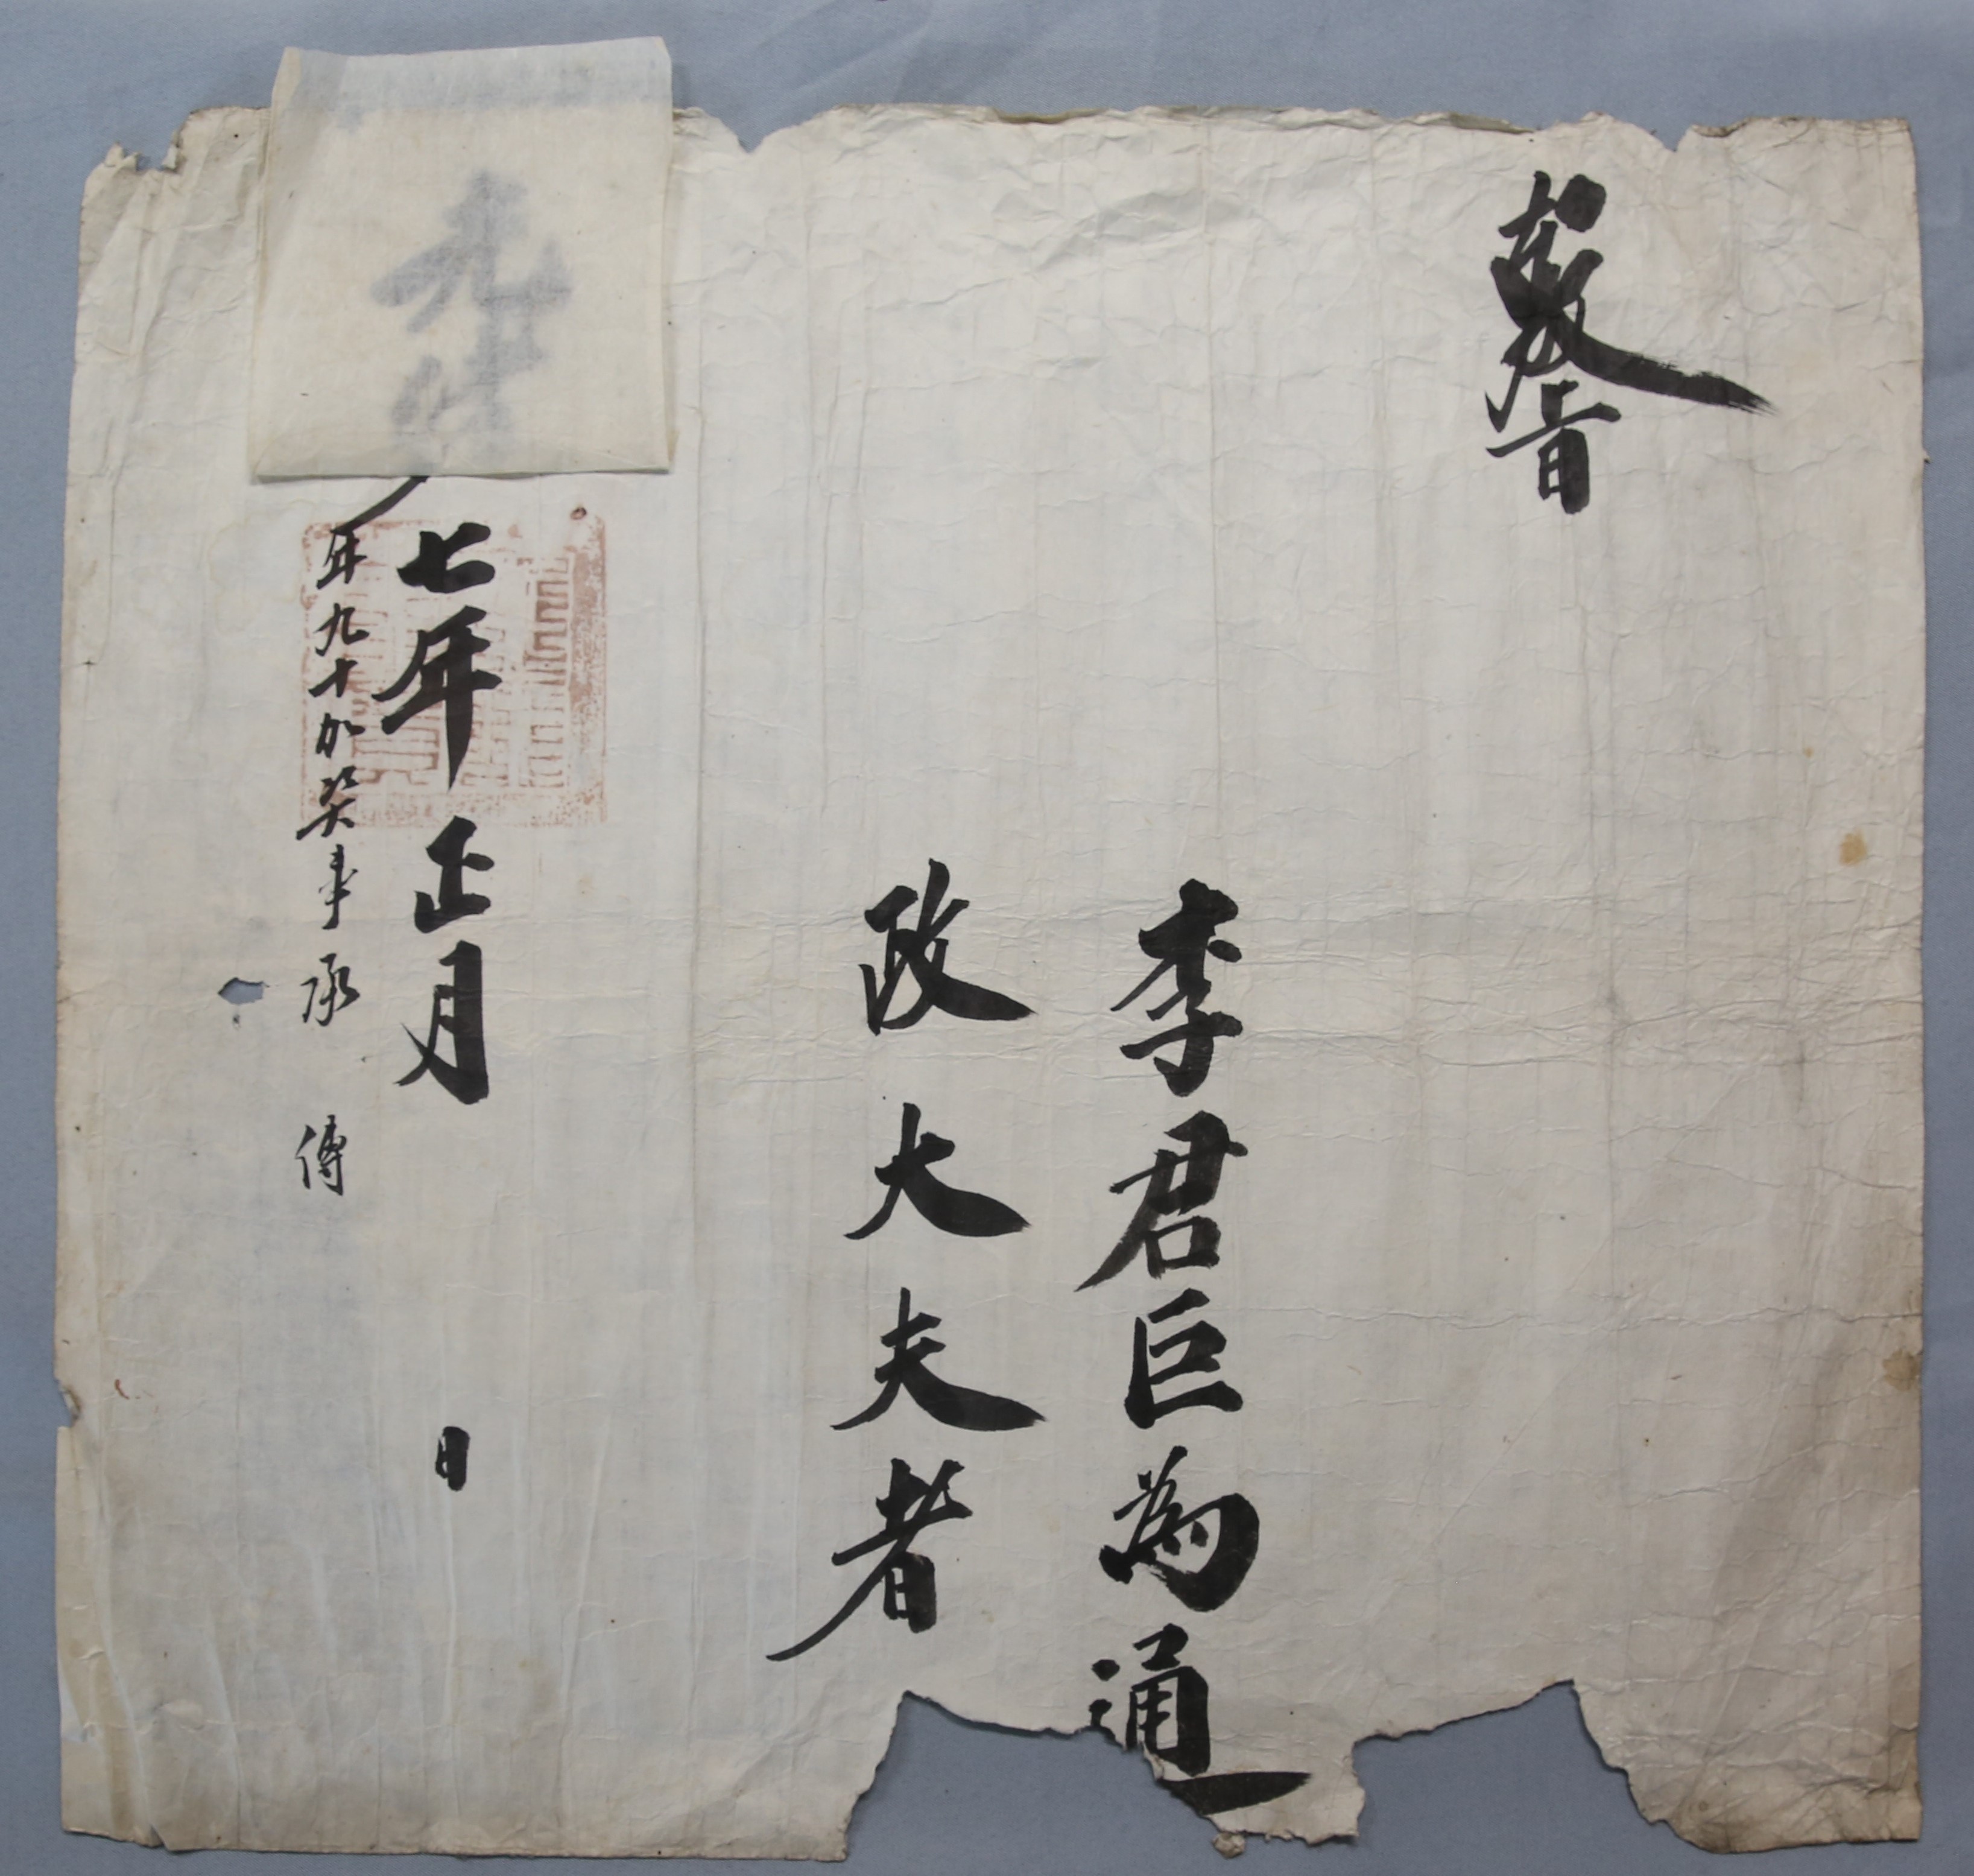 敎旨
李君巨為通
政大夫者
光緒七年正月 日
年九十加資事承 傳